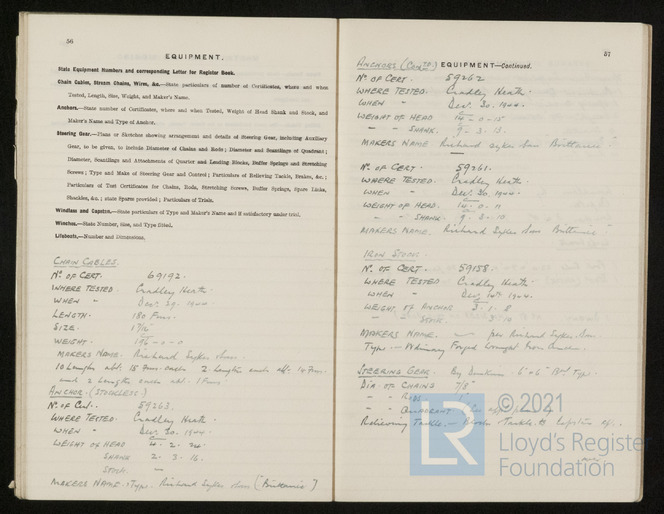 56
EQUIPMENT.
State Equipment Numbers and corresponding Letter for Register Book.
Chain Cables, Stream Chains, Wire, &c.—State particulars of number of Certificates, where and when
Tested, Length, Size, Weight, and Maker's Name.
Anchors.—State number of Certificates, where and when Tested, Weight of Head Shank and Stock, and
Maker's Name and Type of Anchor.
Steering Gear.—Plans or Sketches showing arrangement and details of Steering Gear, including Auxiliary
Gear, to be given, to include Diameter of Chains and Rods; Diameter and Scantlings of Quadrant;
Diameter, Scantlings and Attachments of Quarter and Leading Blocks, Buffer Springs and Stretching
Screws; Type and Make of Steering Gear and Control; Particulars of Relieving Tackle, Brakes, &c.;
Particulars of Test Certificates for Chains, Rods, Stretching Screws, Buffer Springs, Spare Links,
Shackles, &c.; state Spares provided; Particulars of Trials.
Windlass and Capstan.—State particulars of Type and Maker's Name and if satisfactory under trial.
Winches.—State Number, Size, and Type fitted.
Lifeboats.—Number and Dimensions.
CHAIN CABLES
No. OF CERT. 69192.
WHERE TESTED. Cradley Heath.
WHEN " Dec. 29. 1944.
LENGTH. 180 Fms.
SIZE.
WEIGHT. 196-0-0
MAKERS NAME. Richard Sykes Sons.
10 Lengths abt. 15 Fms. each 2 Lengths each abt. 14 Fms.
and 2 Lengths each abt. 1 Fms.
ANCHOR. (STOCKLESS)
No. of Cert. 59263.
WHERE TESTED. Cradley Heath
WHEN " Dec. 30. 1944.
WEIGHT OF HEAD 4. 2. 24.
SHANK 2. 3. 16.
STOCK. —
MAKERS NAME. & Type. Richard Sykes Sons (Brittannic)
57
ANCHORS (CONTD.) EQUIPMENT—Continued.
No. OF CERT. 59262
WHERE TESTED. Cradley Heath.
WHEN " Dec. 30. 1944.
WEIGHT OF HEAD 14-0-15
" " SHANK. 9-3-13.
MAKERS NAME Richard Sykes Sons Brittannic
No. OF CERT. 59261.
WHERE TESTED. Cradley Heath.
WHEN " Dec. 30. 1944.
WEIGHT OF HEAD. 14. 0. 11
" " SHANK. 9. 3. 10
MAKERS NAME. Richard Sykes Sons Brittannic
IRON STOCK.
No. OF CERT. 59158.
WHERE TESTED Cradley Heath.
WHEN " 1944.
WEIGHT OF ANCHOR 3. 1. 8
" STOCK.
MAKERS NAME. — per Richard Sykes Sons.
Type. — Forged Wrought Iron
STEERING GEAR. By 6" x 6" Type.
DIA. OF CHAINS 7/8"
" " RODS
" " QUADRANT
Relieving Tackle. — Tackle to Capstan aft.
© 2021
LR
Lloyd's Register
Foundation